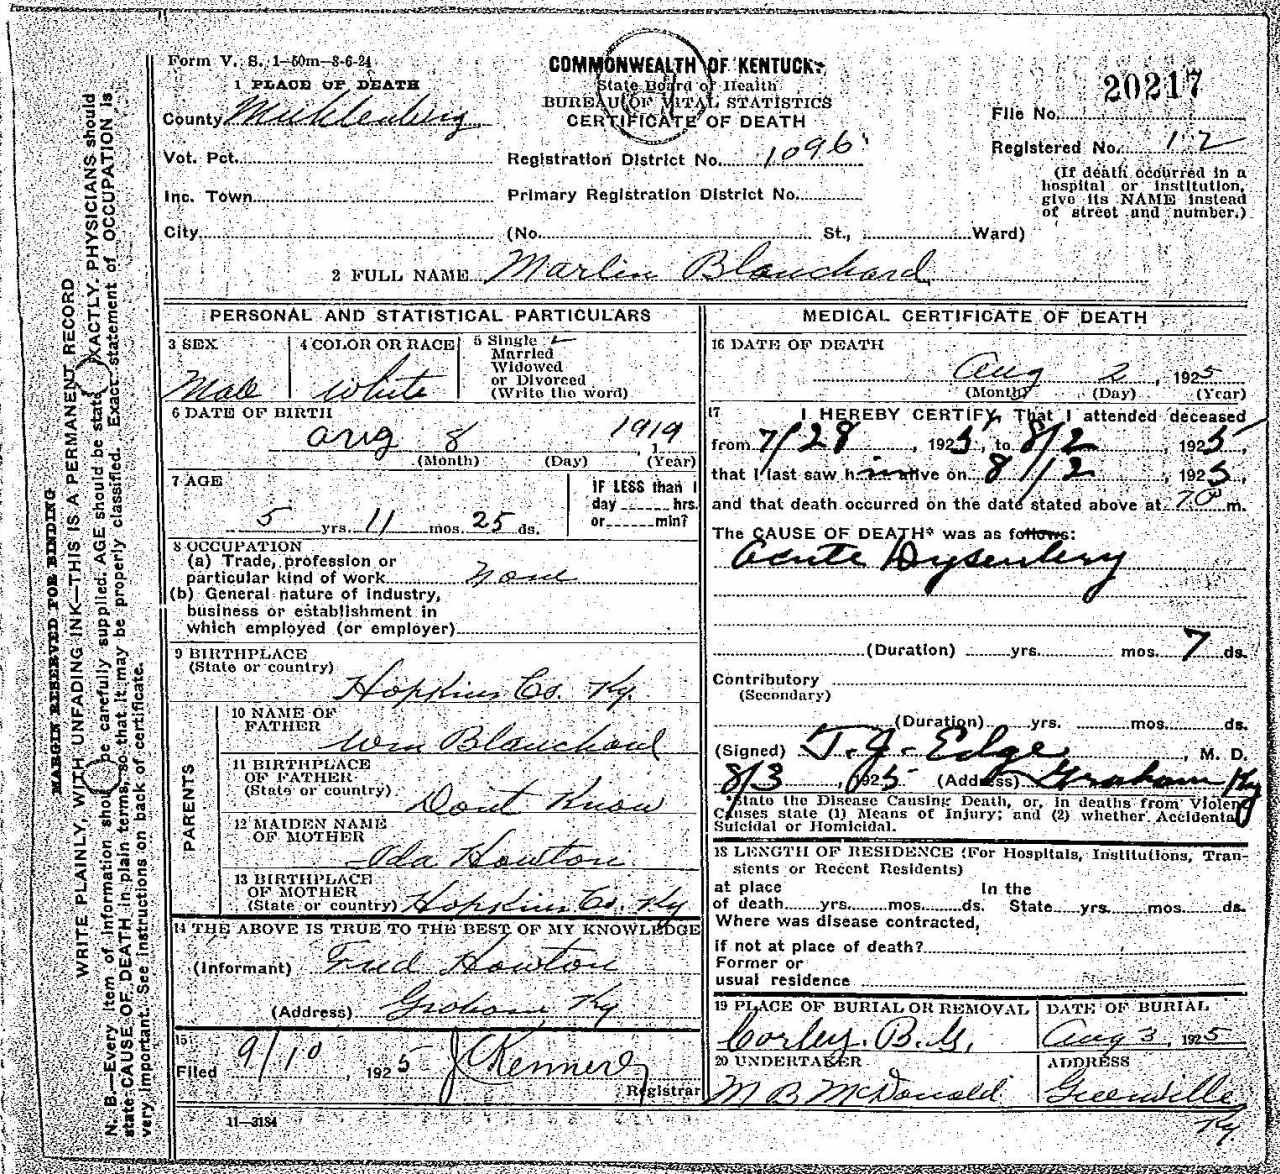 Form V. S. 1–50m–8-6-24
COMMONWEALTH OF KENTUCKY
State Board of Health
BUREAU OF VITAL STATISTICS
CERTIFICATE OF DEATH
20217
File No.
Registered No. 12
(If death occurred in a hospital or institution, give its NAME instead of street and number.)
1 PLACE OF DEATH
County Muhlenberg
Vot. Pct.
Registration District No. 1096
Inc. Town
Primary Registration District No.
City (No. St., Ward)
2 FULL NAME Marlin Blanchard
PERSONAL AND STATISTICAL PARTICULARS
3 SEX
Male
4 COLOR OR RACE
White
5 Single ✓
Married
Widowed
or Divorced
(Write the word)
6 DATE OF BIRTH
Aug 8 1919
(Month) (Day) , 1 (Year)
7 AGE
5 yrs. 11 mos. 25 ds.
IF LESS than 1
day hrs.
or min?
8 OCCUPATION
(a) Trade, profession or
particular kind of work None
(b) General nature of industry,
business or establishment in
which employed (or employer)
9 BIRTHPLACE
(State or country)
Hopkins Co. Ky.
PARENTS
10 NAME OF
FATHER
Wm Blanchard
11 BIRTHPLACE
OF FATHER
(State or country)
Dont Know
12 MAIDEN NAME
OF MOTHER
Ada Howton
13 BIRTHPLACE
OF MOTHER
(State or country) Hopkins Co. Ky
14 THE ABOVE IS TRUE TO THE BEST OF MY KNOWLEDGE
(Informant) Fred Howton
(Address) Graham Ky
15
Filed 9/10, 1925
Registrar
11—3184
MEDICAL CERTIFICATE OF DEATH
16 DATE OF DEATH
Aug 2, 1925
(Month) (Day) (Year)
17 I HEREBY CERTIFY, That I attended deceased
from 7/28, 1925, to 8/2, 1925,
that I last saw him alive on 8/2, 1925,
and that death occurred on the date stated above at m.
The CAUSE OF DEATH* was as follows:
Acute Dysentery
(Duration) yrs. mos. 7 ds.
Contributory
(Secondary)
(Duration) yrs. mos. ds.
(Signed) T. J. Edge, M. D.
8/3, 1925 (Address) Graham Ky
*State the Disease Causing Death, or, in deaths from Violent
Causes state (1) Means of Injury; and (2) whether Accidental
Suicidal or Homicidal.
18 LENGTH OF RESIDENCE (For Hospitals, Institutions, Tran-
sients or Recent Residents)
at place In the
of death yrs. mos. ds. State yrs. mos. ds.
Where was disease contracted,
if not at place of death?
Former or
usual residence
19 PLACE OF BURIAL OR REMOVAL
Corley. B. G.
DATE OF BURIAL
Aug 3, 1925
20 UNDERTAKER
M B McDonald
ADDRESS
Greenville
Ky.
MARGIN RESERVED FOR BINDING
WRITE PLAINLY, WITH UNFADING INK—THIS IS A PERMANENT RECORD
N. B.—Every item of information should be carefully supplied. AGE should be stated EXACTLY. PHYSICIANS should
state CAUSE OF DEATH in plain terms, so that it may be properly classified. Exact statement of OCCUPATION is
very important. See instructions on back of certificate.